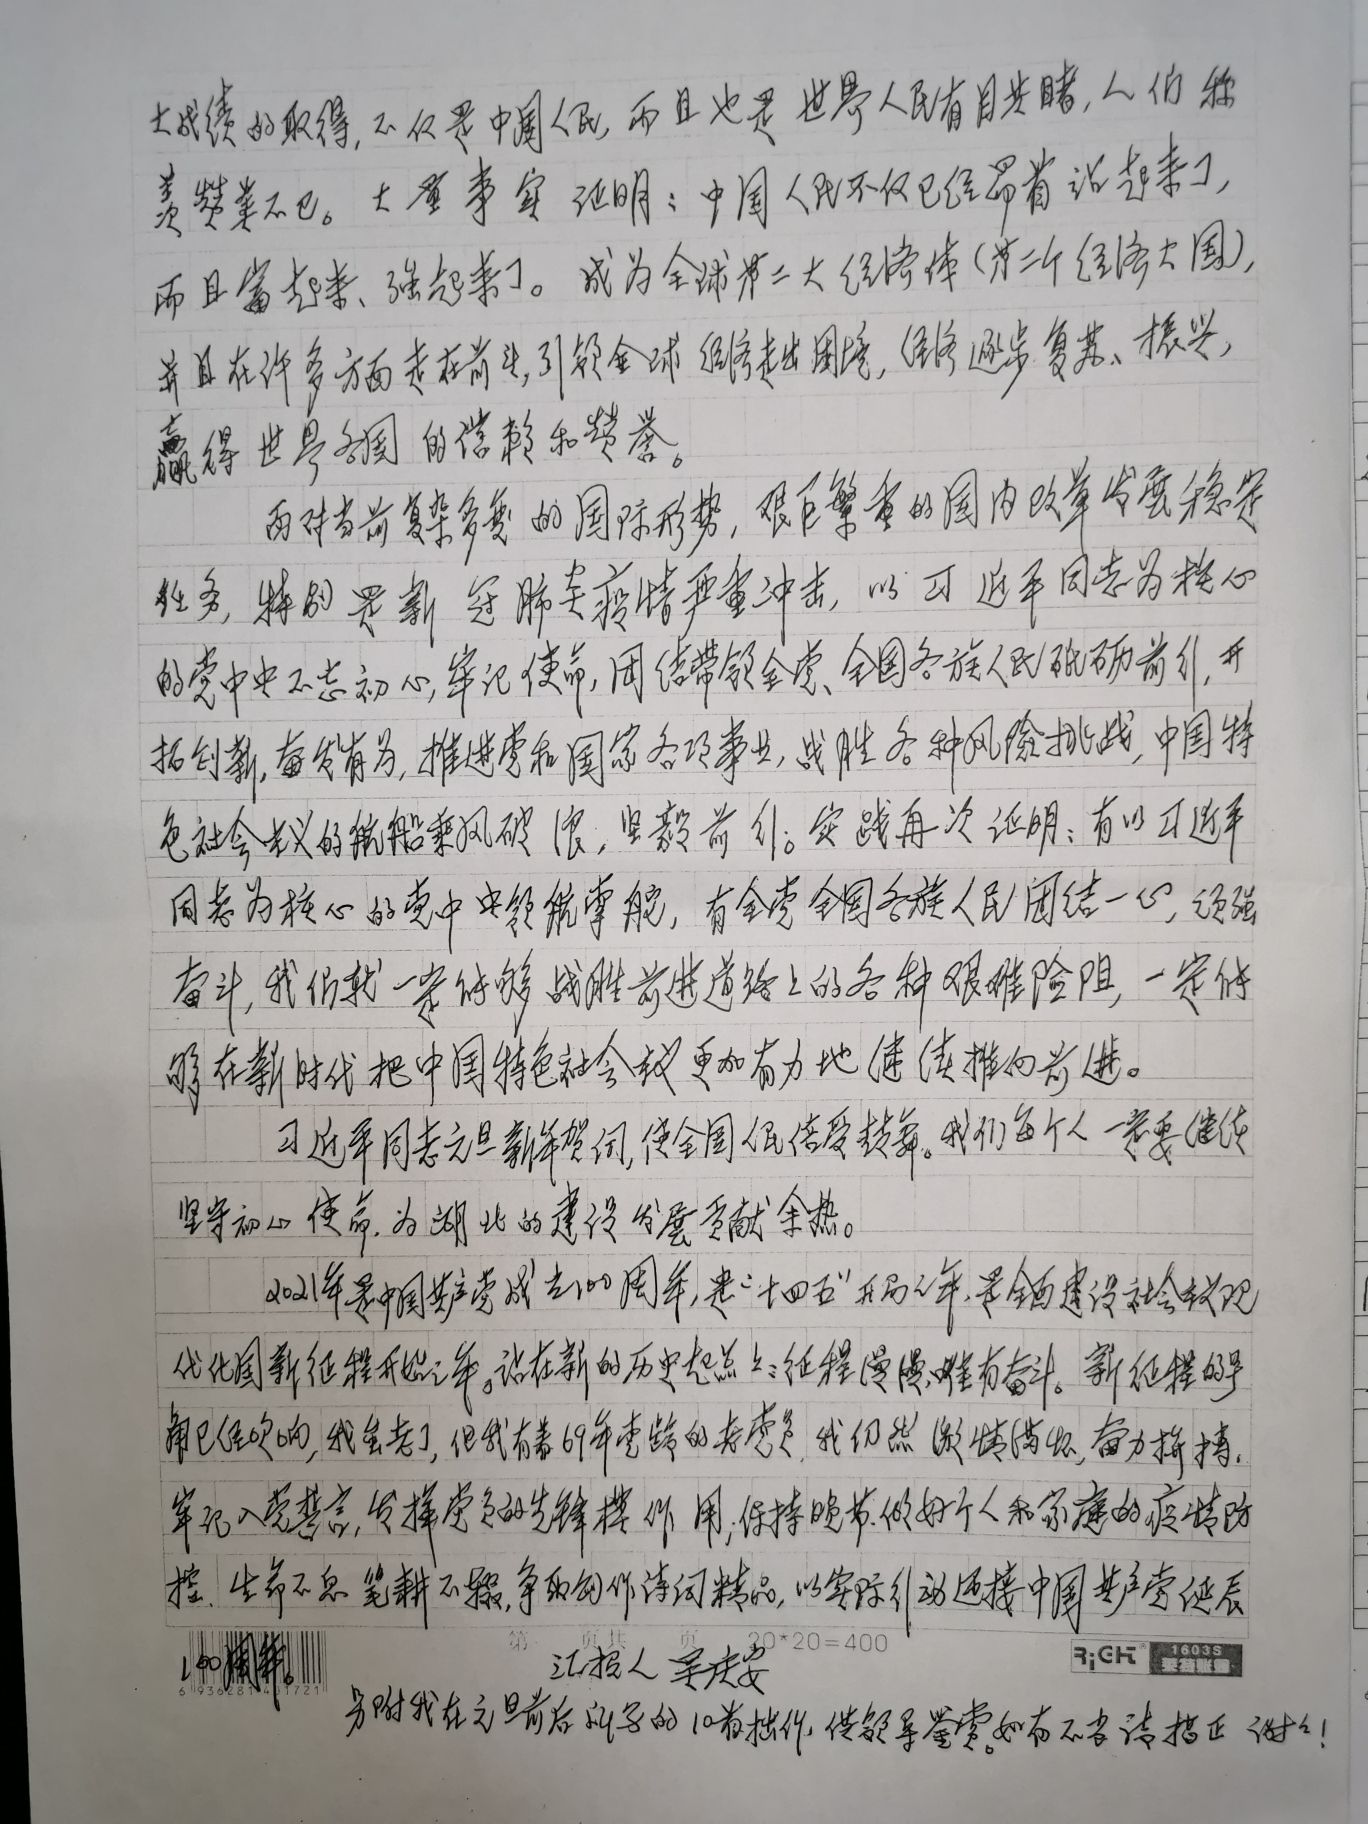 大成绩的取得，不仅是中国人民，而且也是世界人民有目共睹，人们称
羡赞美不已。大量事实证明：中国人民不仅已经昂首站起来了，
而且富起来、强起来了。成为全球第二大经济体（第二个经济大国），
并且在许多方面走在前头，引领全球经济走出困境，经济逐步复苏、振兴，
赢得世界各国的信赖和赞誉。
面对当前复杂多变的国际形势，艰巨繁重的国内改革发展稳定
任务，特别是新冠肺炎疫情严重冲击，以习近平同志为核心
的党中央不忘初心，牢记使命，团结带领全党、全国各族人民砥砺前行，开
拓创新，奋发有为，推进党和国家各项事业，战胜各种风险挑战，中国特
色社会主义的航船乘风破浪，坚毅前行。实践再次证明：有以习近平
同志为核心的党中央领航掌舵，有全党全国各族人民团结一心，顽强
奋斗，我们就一定能够战胜前进道路上的各种艰难险阻，一定能
够在新时代把中国特色社会主义更加有力地继续推向前进。
习近平同志元旦新年贺词，使全国人民倍受鼓舞。我们每个人一定要继续
坚守初心使命，为湖北的建设发展贡献余热。
2021年是中国共产党成立100周年，是“十四五”开局之年，是全面建设社会主义现
代化国新征程开始之年。站在新的历史起点上：征程漫漫，唯有奋斗。新征程的号
角已经吹响，我虽老了，但我有着69年党龄的老党员，我仍然激情满怀，奋力拚搏，
牢记入党誓言，发挥党员的先锋模作用，保持晚节，做好个人和家庭的疫情防
控，生命不息，笔耕不辍，争取创作诗词精品，以实际行动迎接中国共产党诞辰
100周年。
第 页共 页 20*20=400
RiGHT 1603S
6 936281 451721
汇报人 吴庆安
另附我在元旦前后所写的10首拙作，供领导鉴赏。如有不当请指正 谢谢！